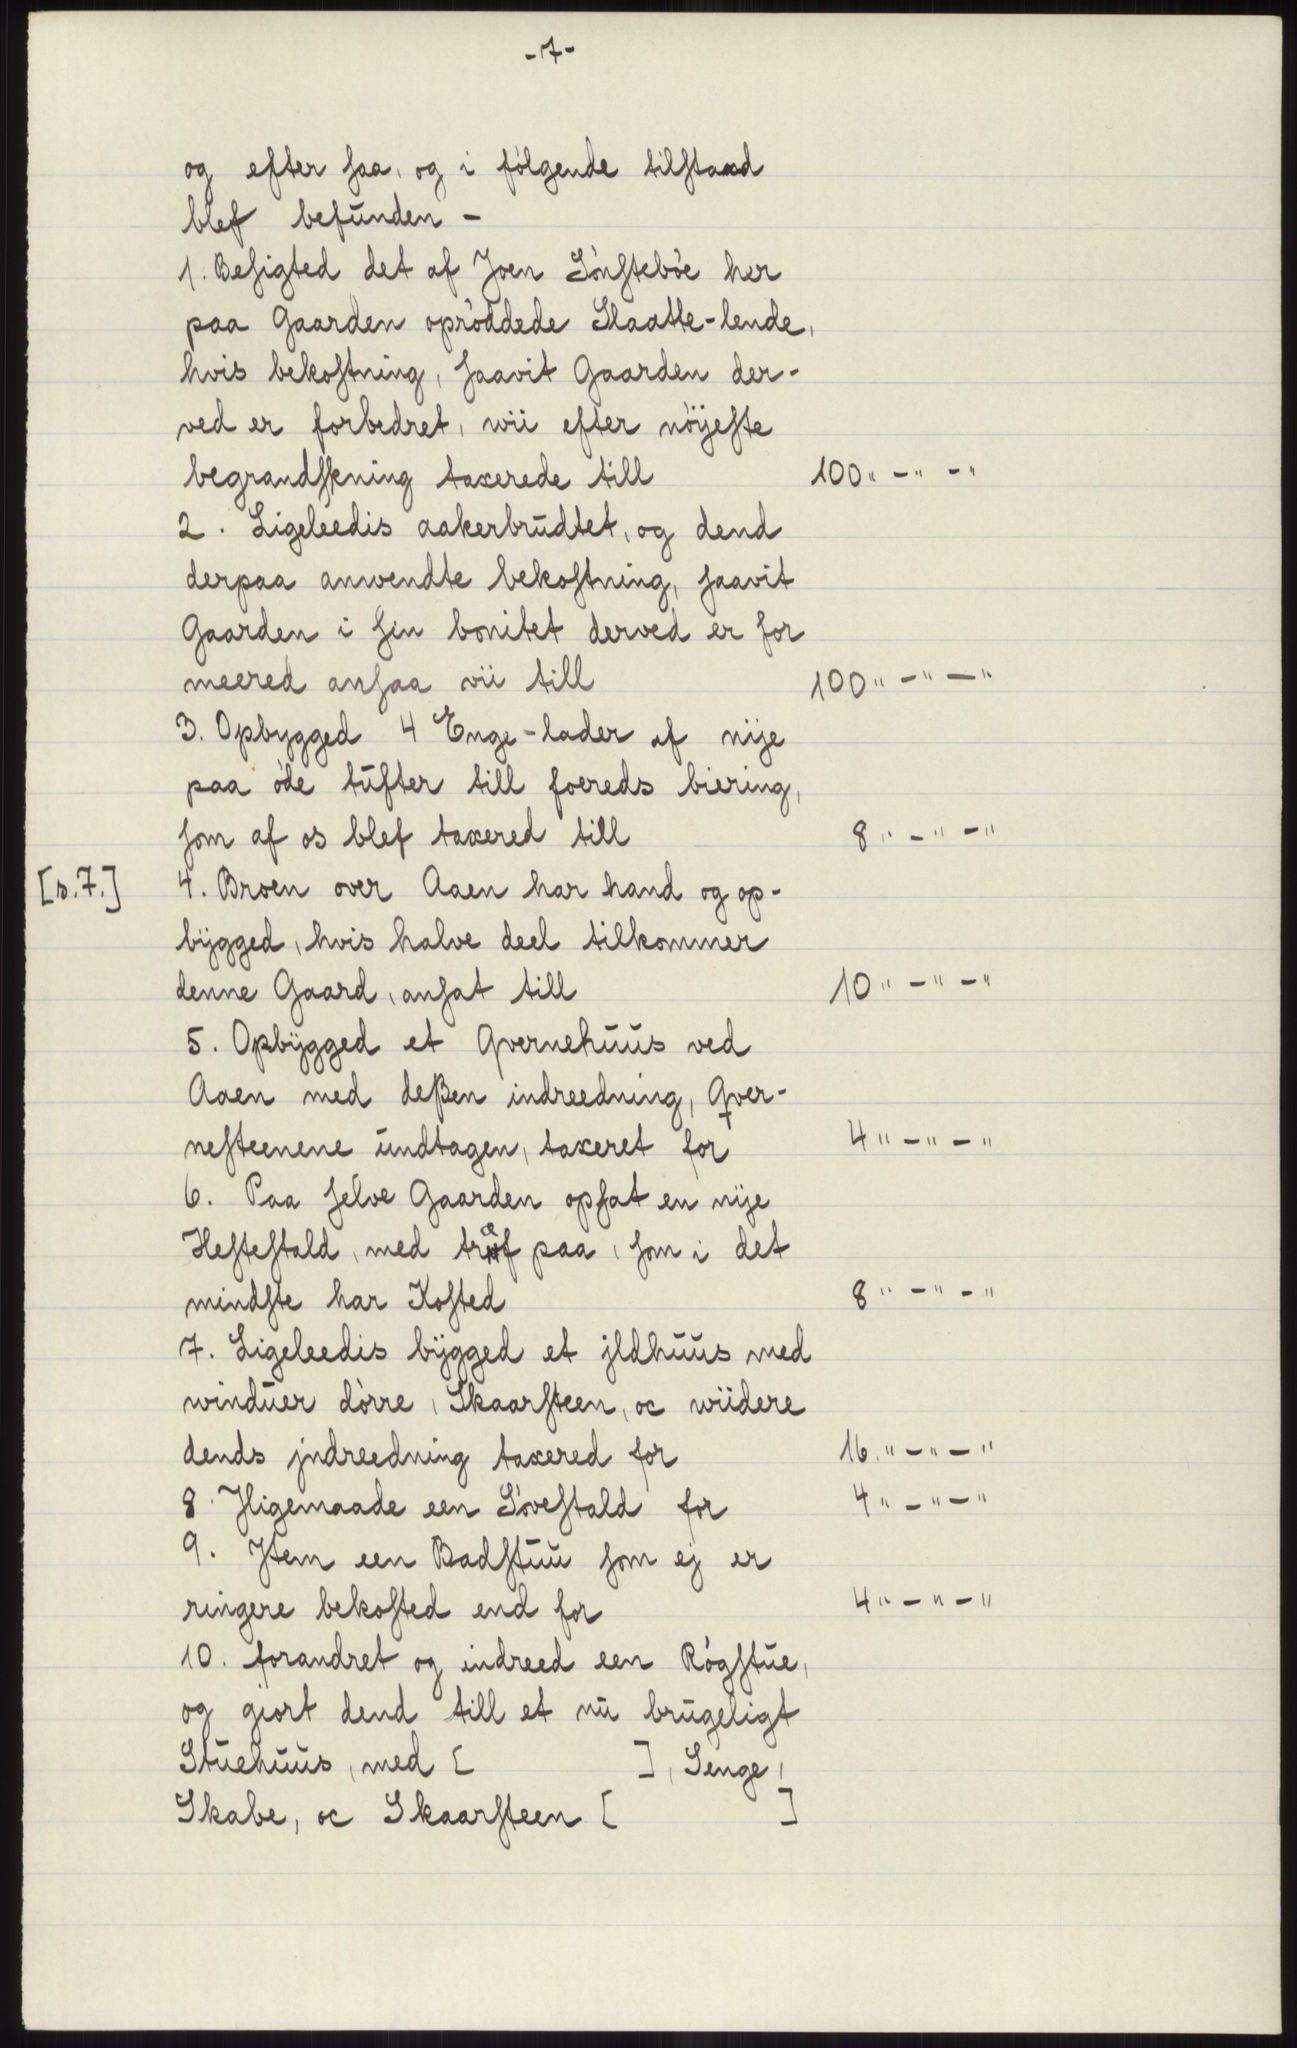 -7-
og efter saa, og i følgende tilstand
blef befunden -
1. Besigted det af Joen Sønstebøe her
paa Gaarden oprøddede Slaatte-lende,
hvis bekostning, saavit Gaarden der-
ved er forbedret, wii efter nöÿeste
begrandskning taxerede till 100 " - " - "
2. Ligeleedis aakerbrudtet, og dend
derpaa anwendte bekostning, saavit
Gaarden i sin bonitet derved er for
meered ansaa vii till 100 " - " - "
3. Opbygged 4 Enge-lader af nÿe
paa öde tufter till foereds biering,
som af os blef taxered till 8 " - " - "
[s.7.] 4. Broen over Aaen har hand og op-
bÿgged, hvis halve deel tilkommer
denne Gaard, ansat till 10 " - " - "
5. Opbÿgged et Qvernehuus ved
Aaen med deßen indreedning, Qver-
nesteenene undtagen, taxeret for 4 " - " - "
6. Paa selve Gaarden opsat en nÿe
Hestestald, med træf paa, som i det
mindste har Kosted 8 " - " - "
7. Ligeleedis bÿgged et jldhuus med
winduer dörre, Skaarsteen, oc wiidere
dends jndreedning taxered for 16. " - " - "
8. Jligemaade een Sövestald for 4 " - " - "
9. Jtem een Badstuu som ej er
ringere bekosted end for 4 " - " - "
10. forandret og indreed een Rógstue,
og giort dend till et nu brugeligt
Stuehuus, med [ ], Senge,
Skabe, oc Skaarsteen [ ]